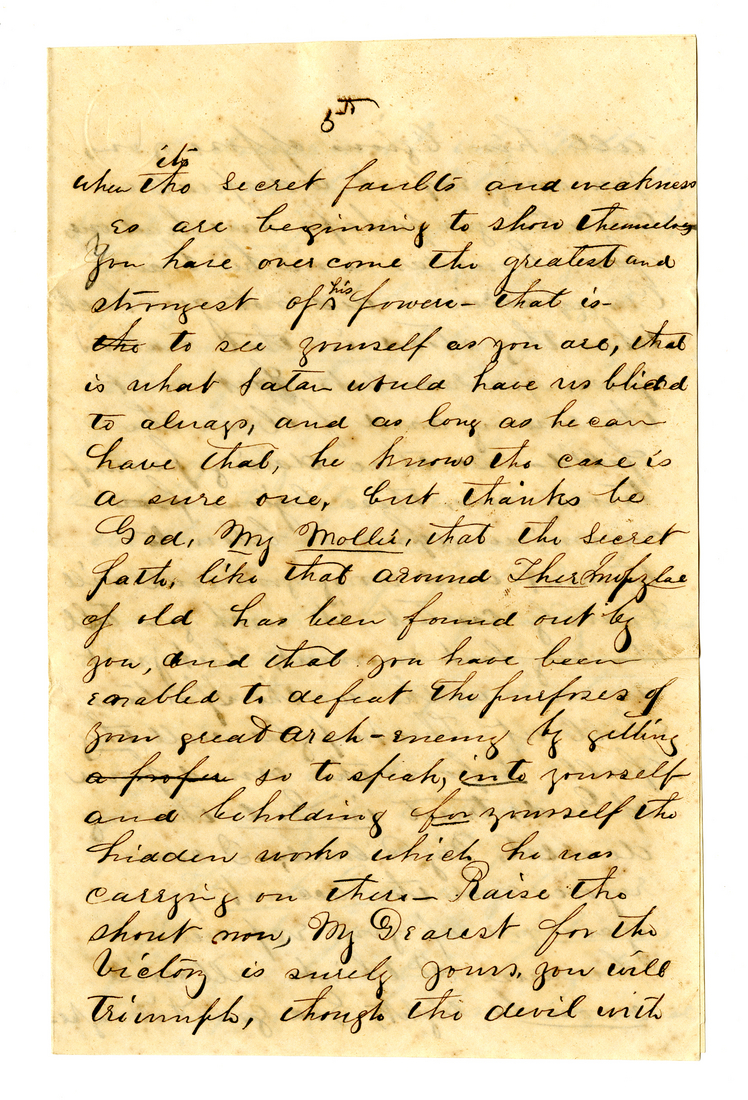 5th
its
when the secret faults and weakness
es are beginning to show themselves
You have over come the greatest and
strongest of his powers - that is -
the to see yourself as you are, that
is what Satan would have us blind
to always, and as long as he can
have that, he knows the case is
a sure one, but thanks be
God, My Mollie, that the secret
path, like that around Thermopylae
of old has been found out by
you, and that you have been
enabled to defeat the purposes of
your great arch-enemy by getting
a proper so to speak, into yourself
and beholding for yourself the
hidden works which he was
carrying on there - Raise the
shout now, My Dearest for the
Victory is surely yours, you will
Triumph, though the devil with